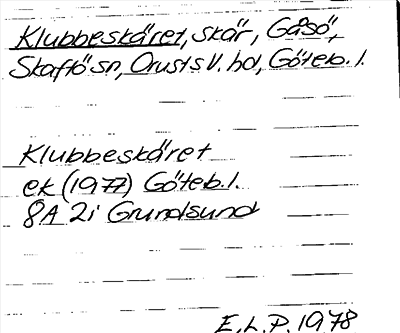 Klubbeskäret, skär, Gåsö,
Skaftö sn, Orusts V. hd, Göteb. l.
Klubbeskäret
ek (1977) Göteb. l.
8A 2i Grundsund
E.L.P. 1978